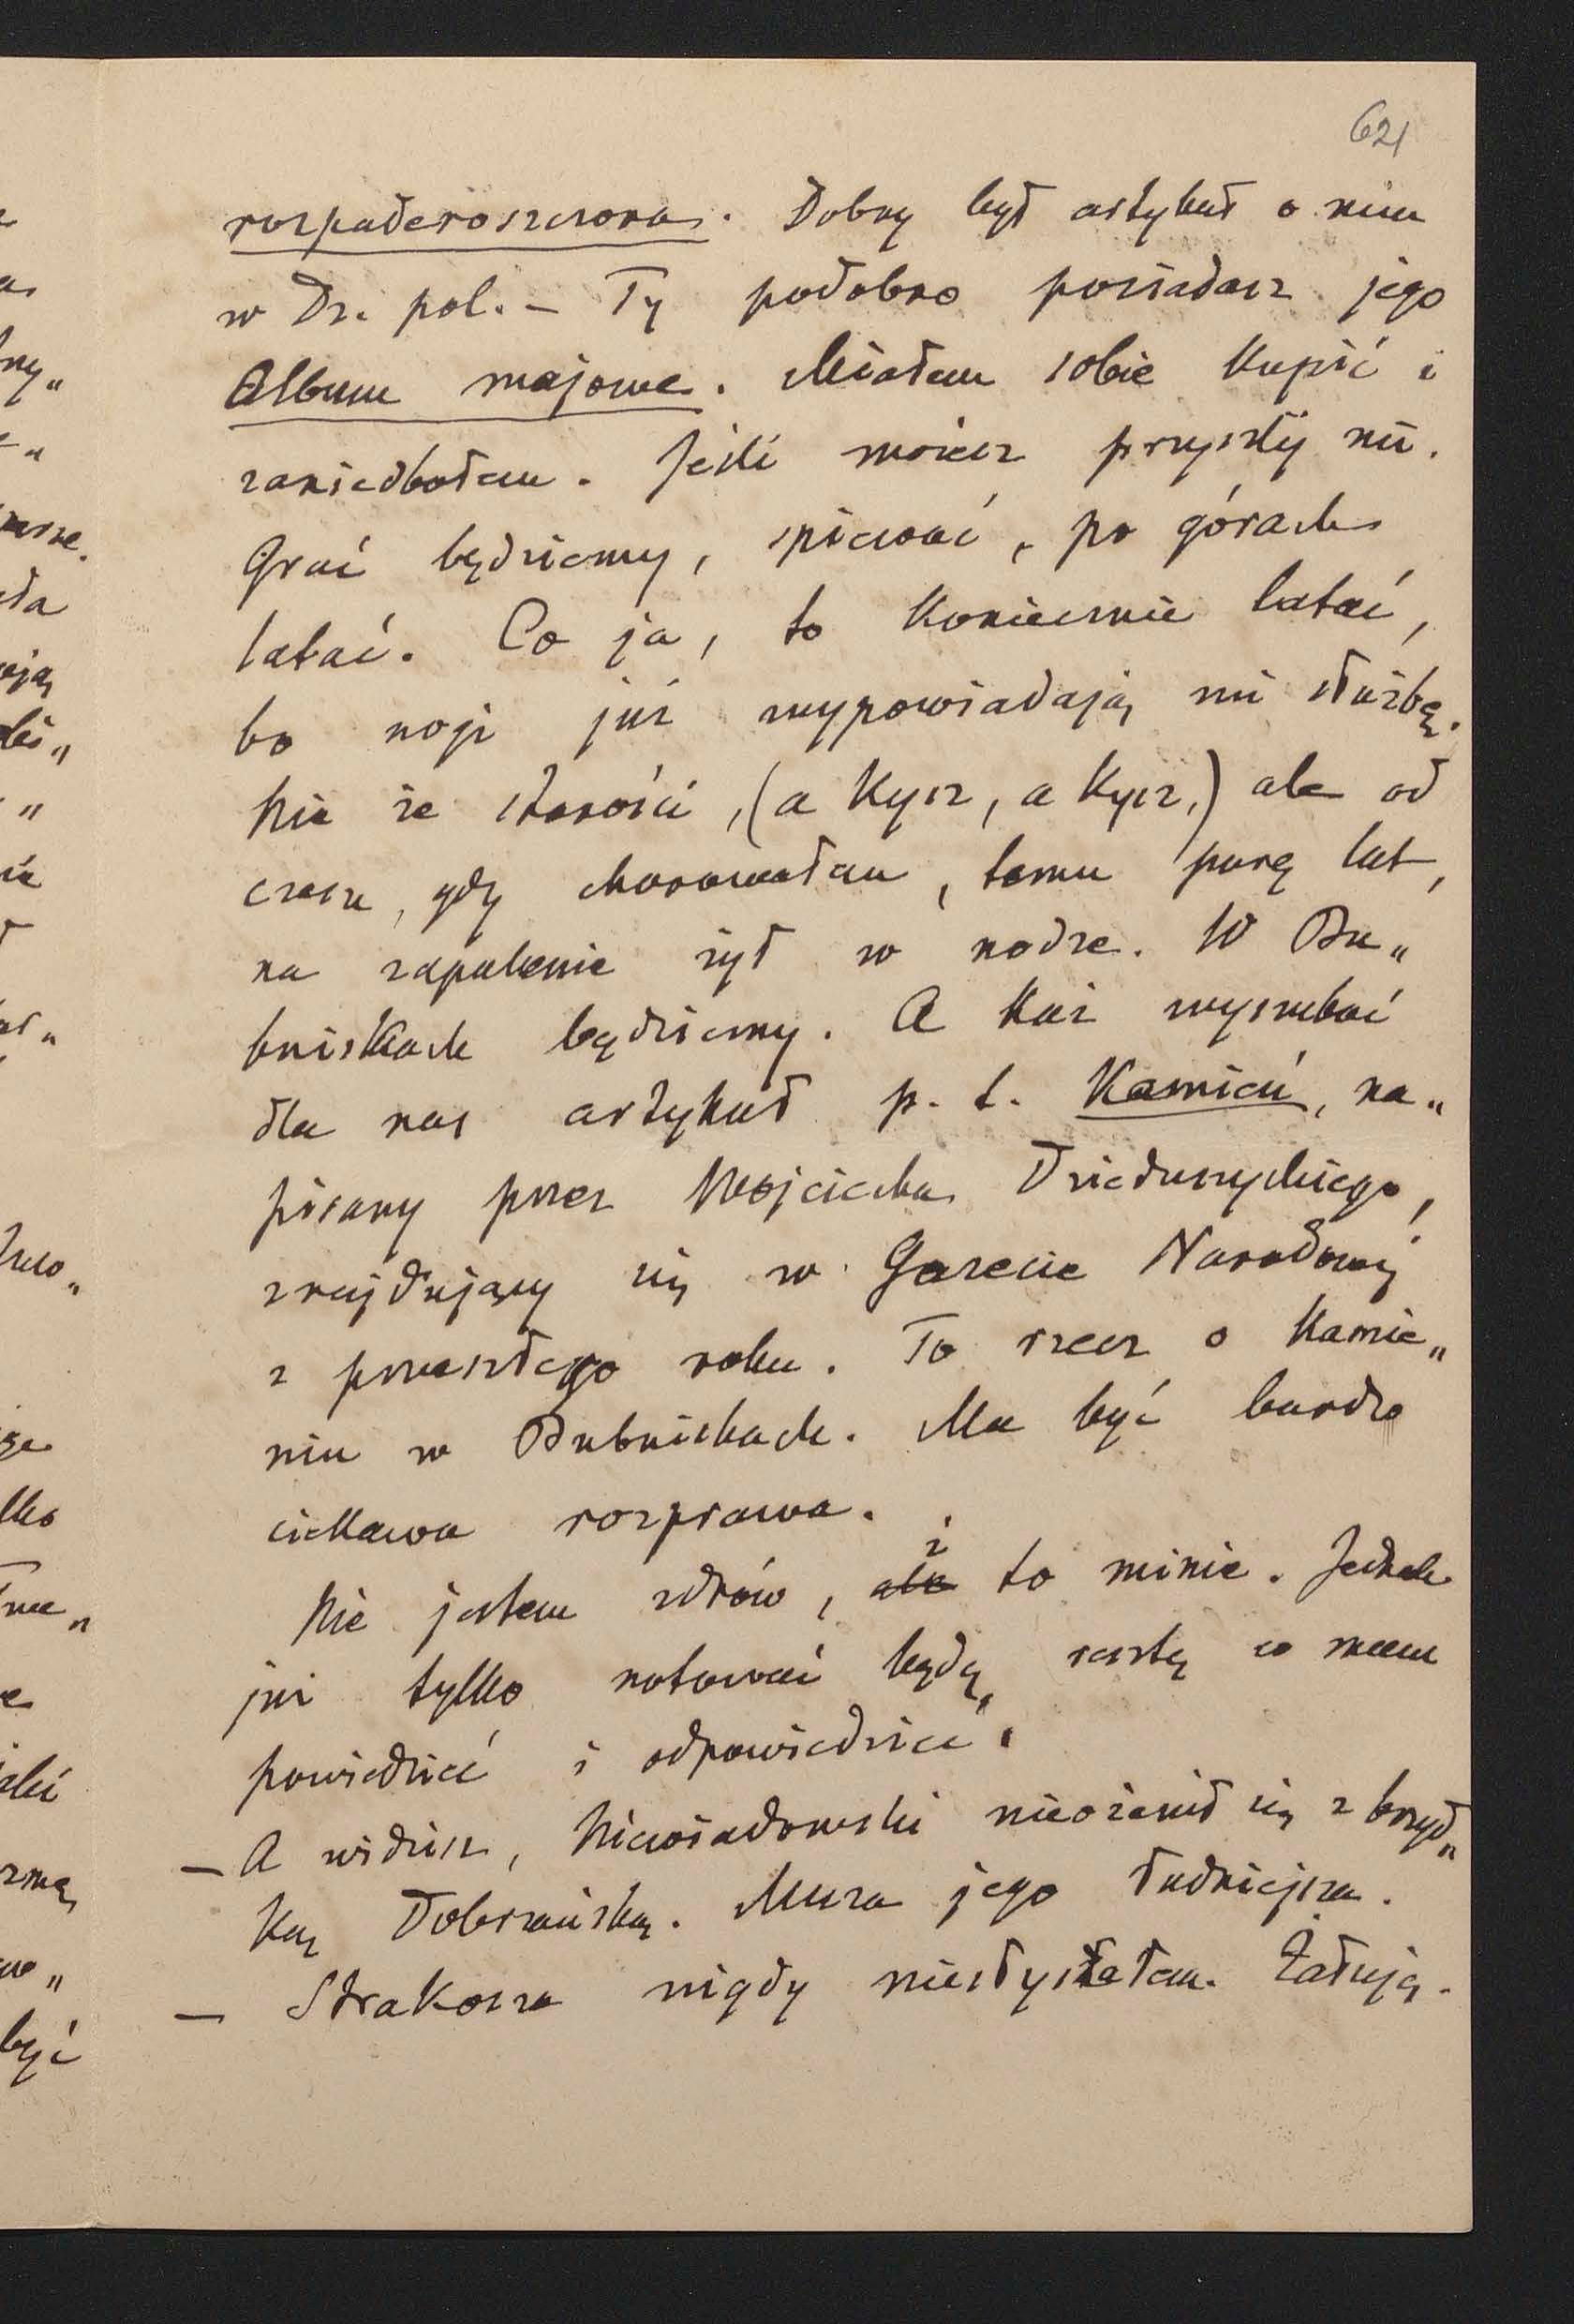 621
rozpaderoszczona. Dobry był artykuł o nim
w Dz. pol. – Ty podobno posiadasz jego
Album majowe. Miałem sobie kupić i
zaniedbałem. Jeśli możesz przyszlij mi.
Grać będziemy, śpiewać, po górach
latać. Co ja, to koniecznie latać,
bo nogi już wypowiadają mi służbę.
Nie ze starości, (a kysz, a kysz,) ale od
czasu, gdy chorowałem, temu parę lat,
na zapalenie żył w nodze. W Bu„
bniskach będziemy. A każ wyszukać
dla nas artykuł p. t. Kamień, na„
pisany przez Wojciecha Dzieduszyckiego,
znajdujący się w Gazecie Narodowej
z przeszłego roku. To rzecz o kamie„
niu w Bubniskach. Ma być bardzo
ciekawa rozprawa.
Nie jestem zdrów, ale i to minie. Jednak
już tylko notować będę, resztę co mam
powiedzieć i odpowiedzieć.
– A widzisz, Niewiadomski nieożenił się z brzyd„
ką Dobrzańską. Muza jego ładniejsza.
– Strakosza nigdy niesłyszałem. Żałuję.